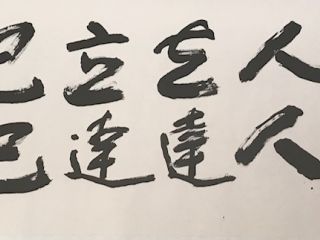 己立立人
己達達人